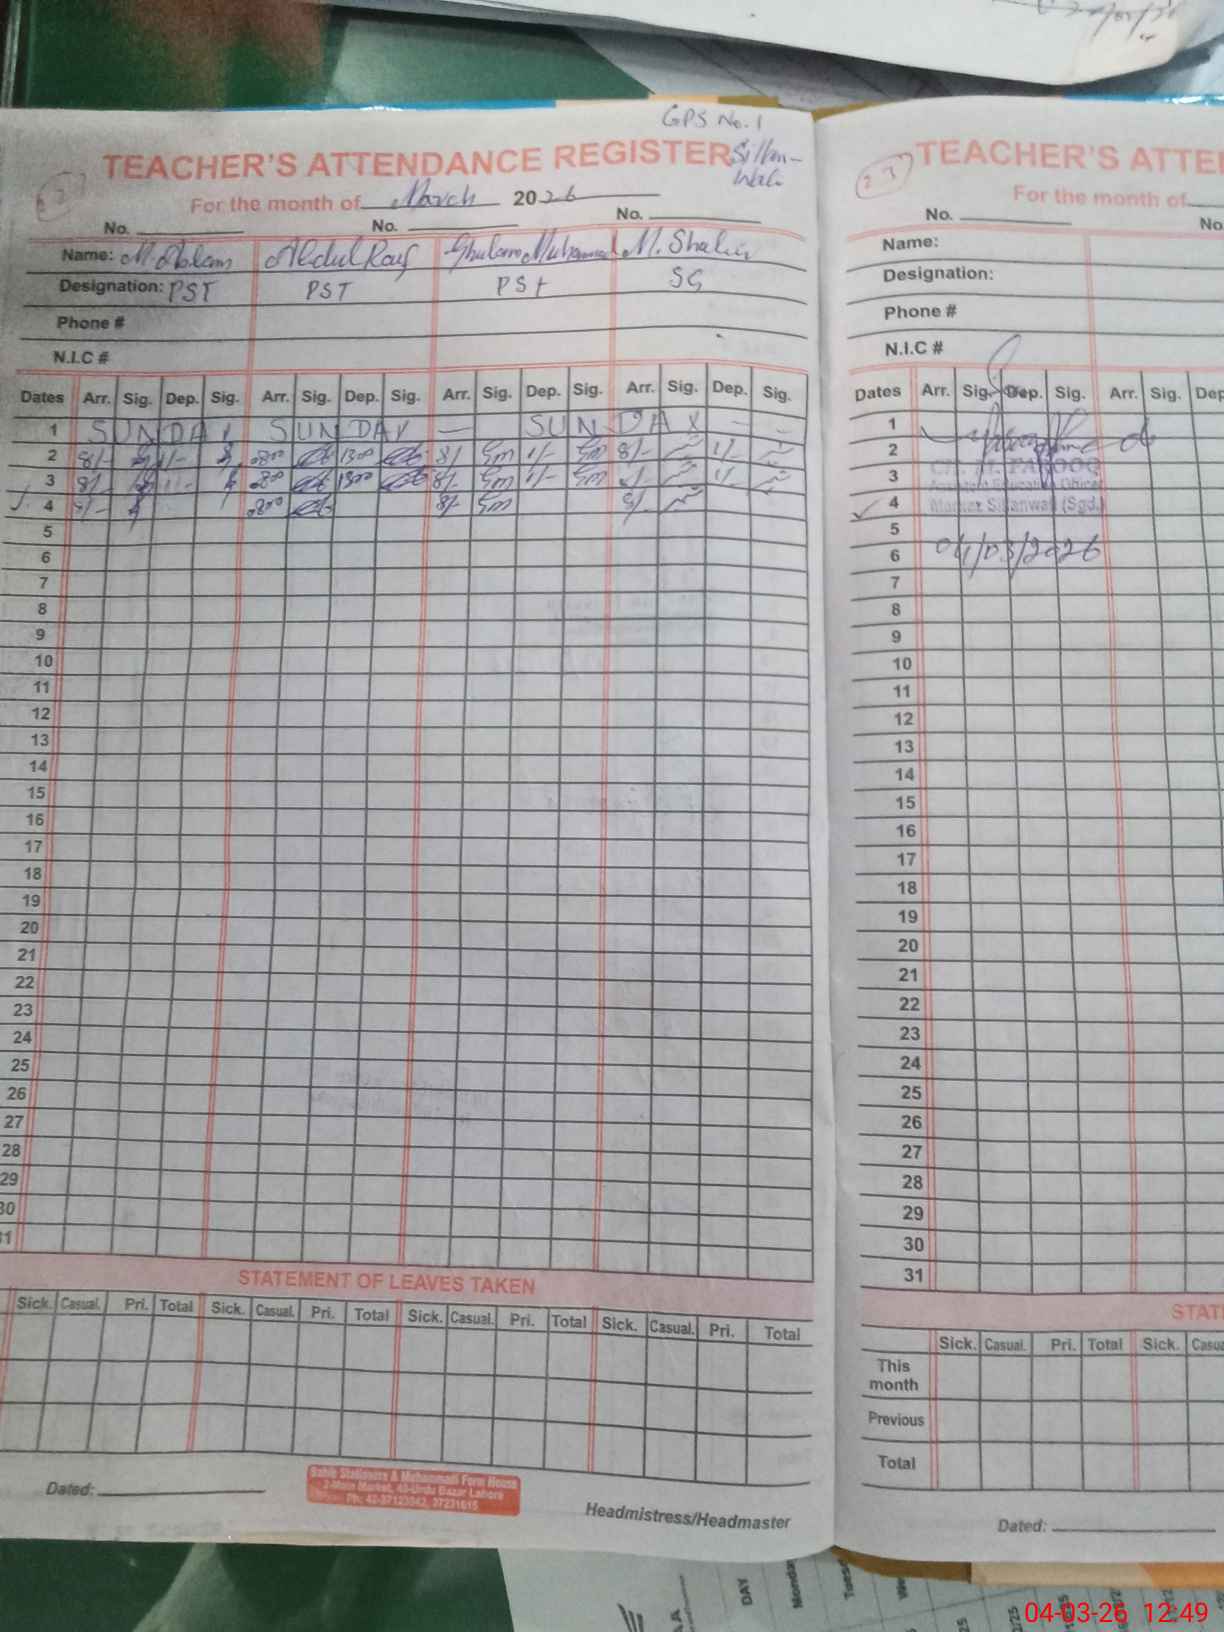 GPS No. 1
TEACHER'S ATTENDANCE REGISTER
Sillan-
wali
For the month of March 2026
No. No. No.
Name: M. Aslam Abdul Rauf Ghulam Muhammad M. Shahid
Designation: PST PST PST SG
Phone #
N.I.C #
Dates Arr. Sig. Dep. Sig. Arr. Sig. Dep. Sig. Arr. Sig. Dep. Sig. Arr. Sig. Dep. Sig.
1 SUNDAY SUNDAY — SUNDAY — —
2 8/- 11/- 0800 1300 8/- 1/- 8/- 11/-
3 8/- 11/- 0800 1300 8/- 1/- 11/-
4 0800 8/-
5
6
7
8
9
10
11
12
13
14
15
16
17
18
19
20
21
22
23
24
25
26
27
28
29
30
31
STATEMENT OF LEAVES TAKEN
Sick. Casual. Pri. Total Sick. Casual. Pri. Total Sick. Casual. Pri. Total Sick. Casual. Pri. Total
Dated:
Sabir Stationers & Muhammadi Form House
2-Main Market, 40-Urdu Bazar Lahore
Headmistress/Headmaster
23
TEACHER'S ATTE
For the month of
No. No
Name:
Designation:
Phone #
N.I.C #
Dates Arr. Sig. Dep. Sig. Arr. Sig. Dep
1
2
3
4
5
6
7
8
9
10
11
12
13
14
15
16
17
18
19
20
21
22
23
24
25
26
27
28
29
30
31
CH. M. FAROOQ
Assistant Education Officer
Markaz Sillanwali (Sgd.)
04/03/2026
STAT
Sick. Casual. Pri. Total Sick. Casu
This
month
Previous
Total
Dated:
DAY
Monda
Tuesd
We
04-03-26 12:49